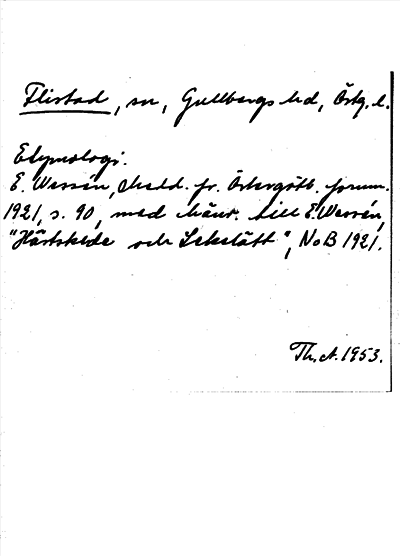 Flistad, sn, Gullbergs hd, Östg. l.
Etymologi.
E. Wessén, Medd. fr. Östergötl. fornm.
1921, s. 90, med hänv. till E. Wessén,
"Hästskede och Lekslätt", NoB 1921.
Th. A. 1953.